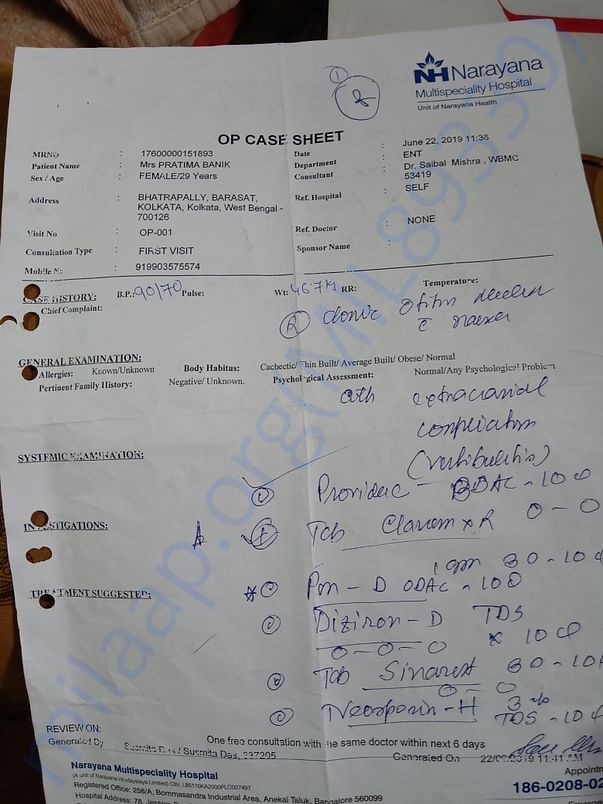 NH Narayana
Multispeciality Hospital
Unit of Narayana Health
1
8
OP CASE SHEET
MRNO : 17600000151893
Patient Name : Mrs PRATIMA BANIK
Sex / Age : FEMALE/29 Years
Address : BHATRAPALLY, BARASAT,
KOLKATA, Kolkata, West Bengal -
700126
Visit No : OP-001
Consultation Type : FIRST VISIT
Mobile No : 919903575574
Date : June 22, 2019 11:38
Department : ENT
Consultant : Dr. Saibal Mishra , WBMC
53419
Ref. Hospital : SELF
Ref. Doctor : NONE
Sponsor Name :
CASE HISTORY: B.P.: 90/70 Pulse: Wt: 46.7kg RR: Temperature:
Chief Complaint:
(R) chronic otitis media
GENERAL EXAMINATION:
Allergies: Known/Unknown Body Habitus: Cachectic/Thin Built/ Average Built/ Obese/ Normal
Pertinent Family History: Negative/ Unknown. Psychological Assessment: Normal/Any Psychological Problem
with extracranial
complication
SYSTEMIC EXAMINATION:
Providac - BDAC - 10d
INVESTIGATIONS:
Tab Clavam 0 - 0
1 gm BD - 10d
TREATMENT SUGGESTED:
Pan - D ODAC - 10d
Diziron - D TDS
0 - 0 - 0 x 10d
Tab Sinarest BD - 10d
0 - 0
Neosporin - H
TDS - 10d
REVIEW ON: One free consultation with the same doctor within next 6 days
Generated By Susmita Das / Susmita Das, 337205 Generated On 22/06/2019 11:41 AM
Narayana Multispeciality Hospital
(A unit of Narayana Hrudayalaya Limited) CIN: L85110KA2000PLC027497
Registered Office: 258/A, Bommasandra Industrial Area, Anekal Taluk, Bangalore 560099
Hospital Address: 78,
Appointm
186-0208-02
milaap.org(MIL89330)